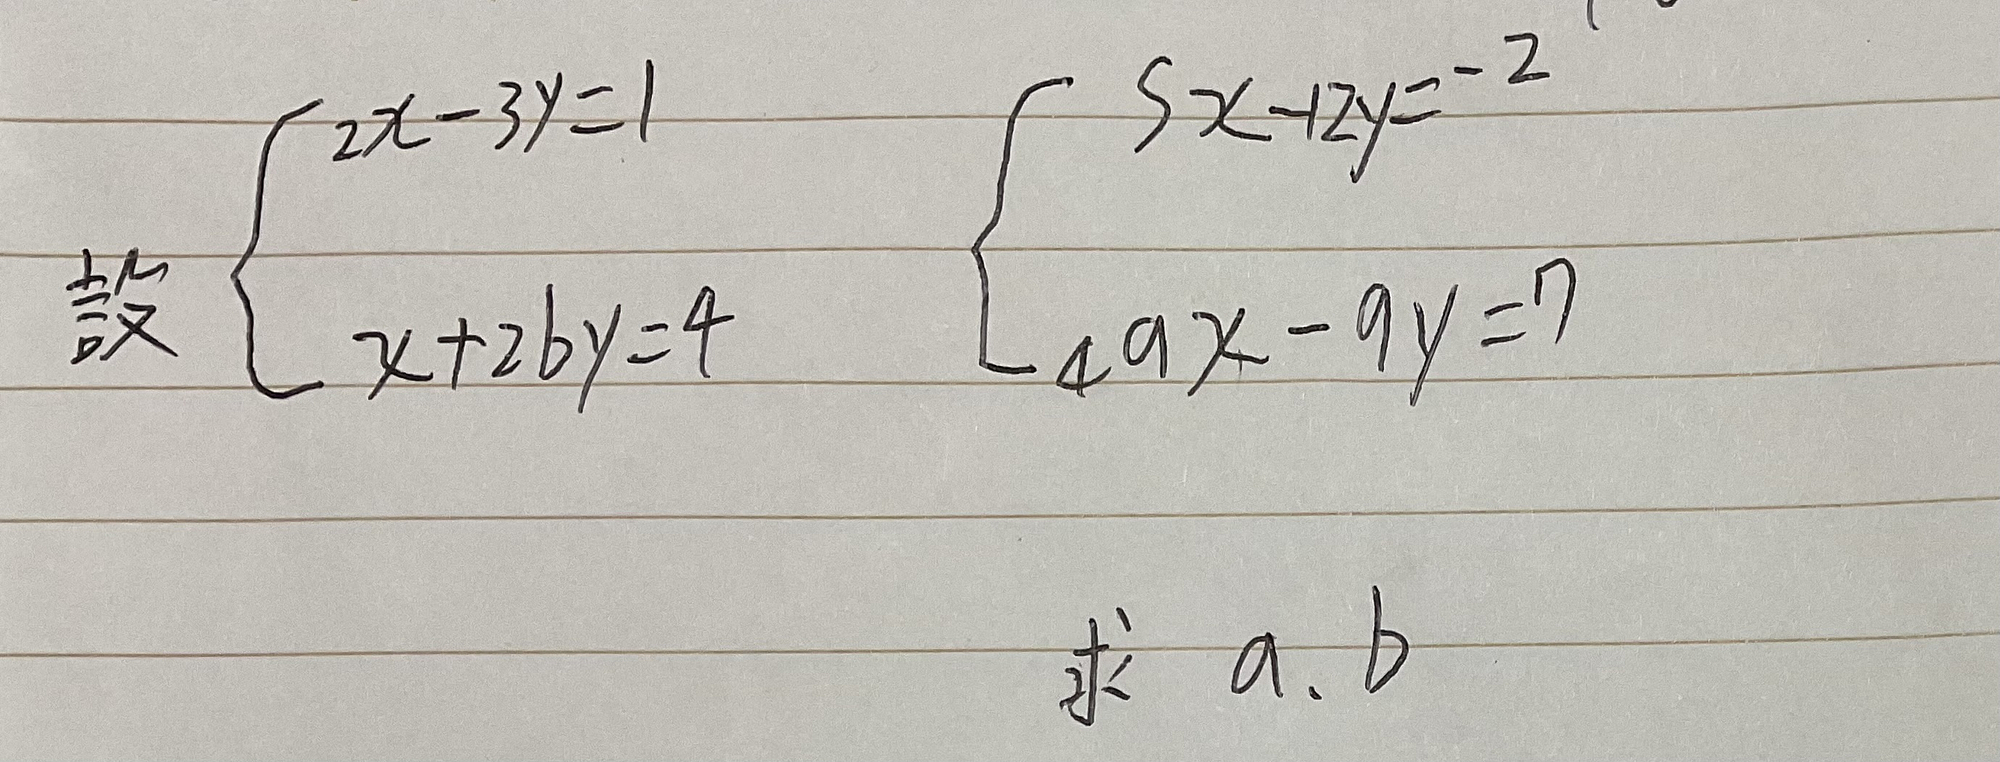 設 { 2x-3y=1
x+2by=4
{ 5x-12y=-2
4ax-9y=7
求 a、b